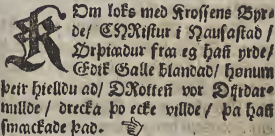 KOm loks med Krossens Byr-
de/ CNRistur i Nausastad/
Ørpiædur fræ eg hañ yrde/
Edik Galle blandad/ hønum
þeir hielldu ad/ DRotteñ vor Dyrdar-
millde/ drecka þo ecke villde/ þa hañ
smackade þad.